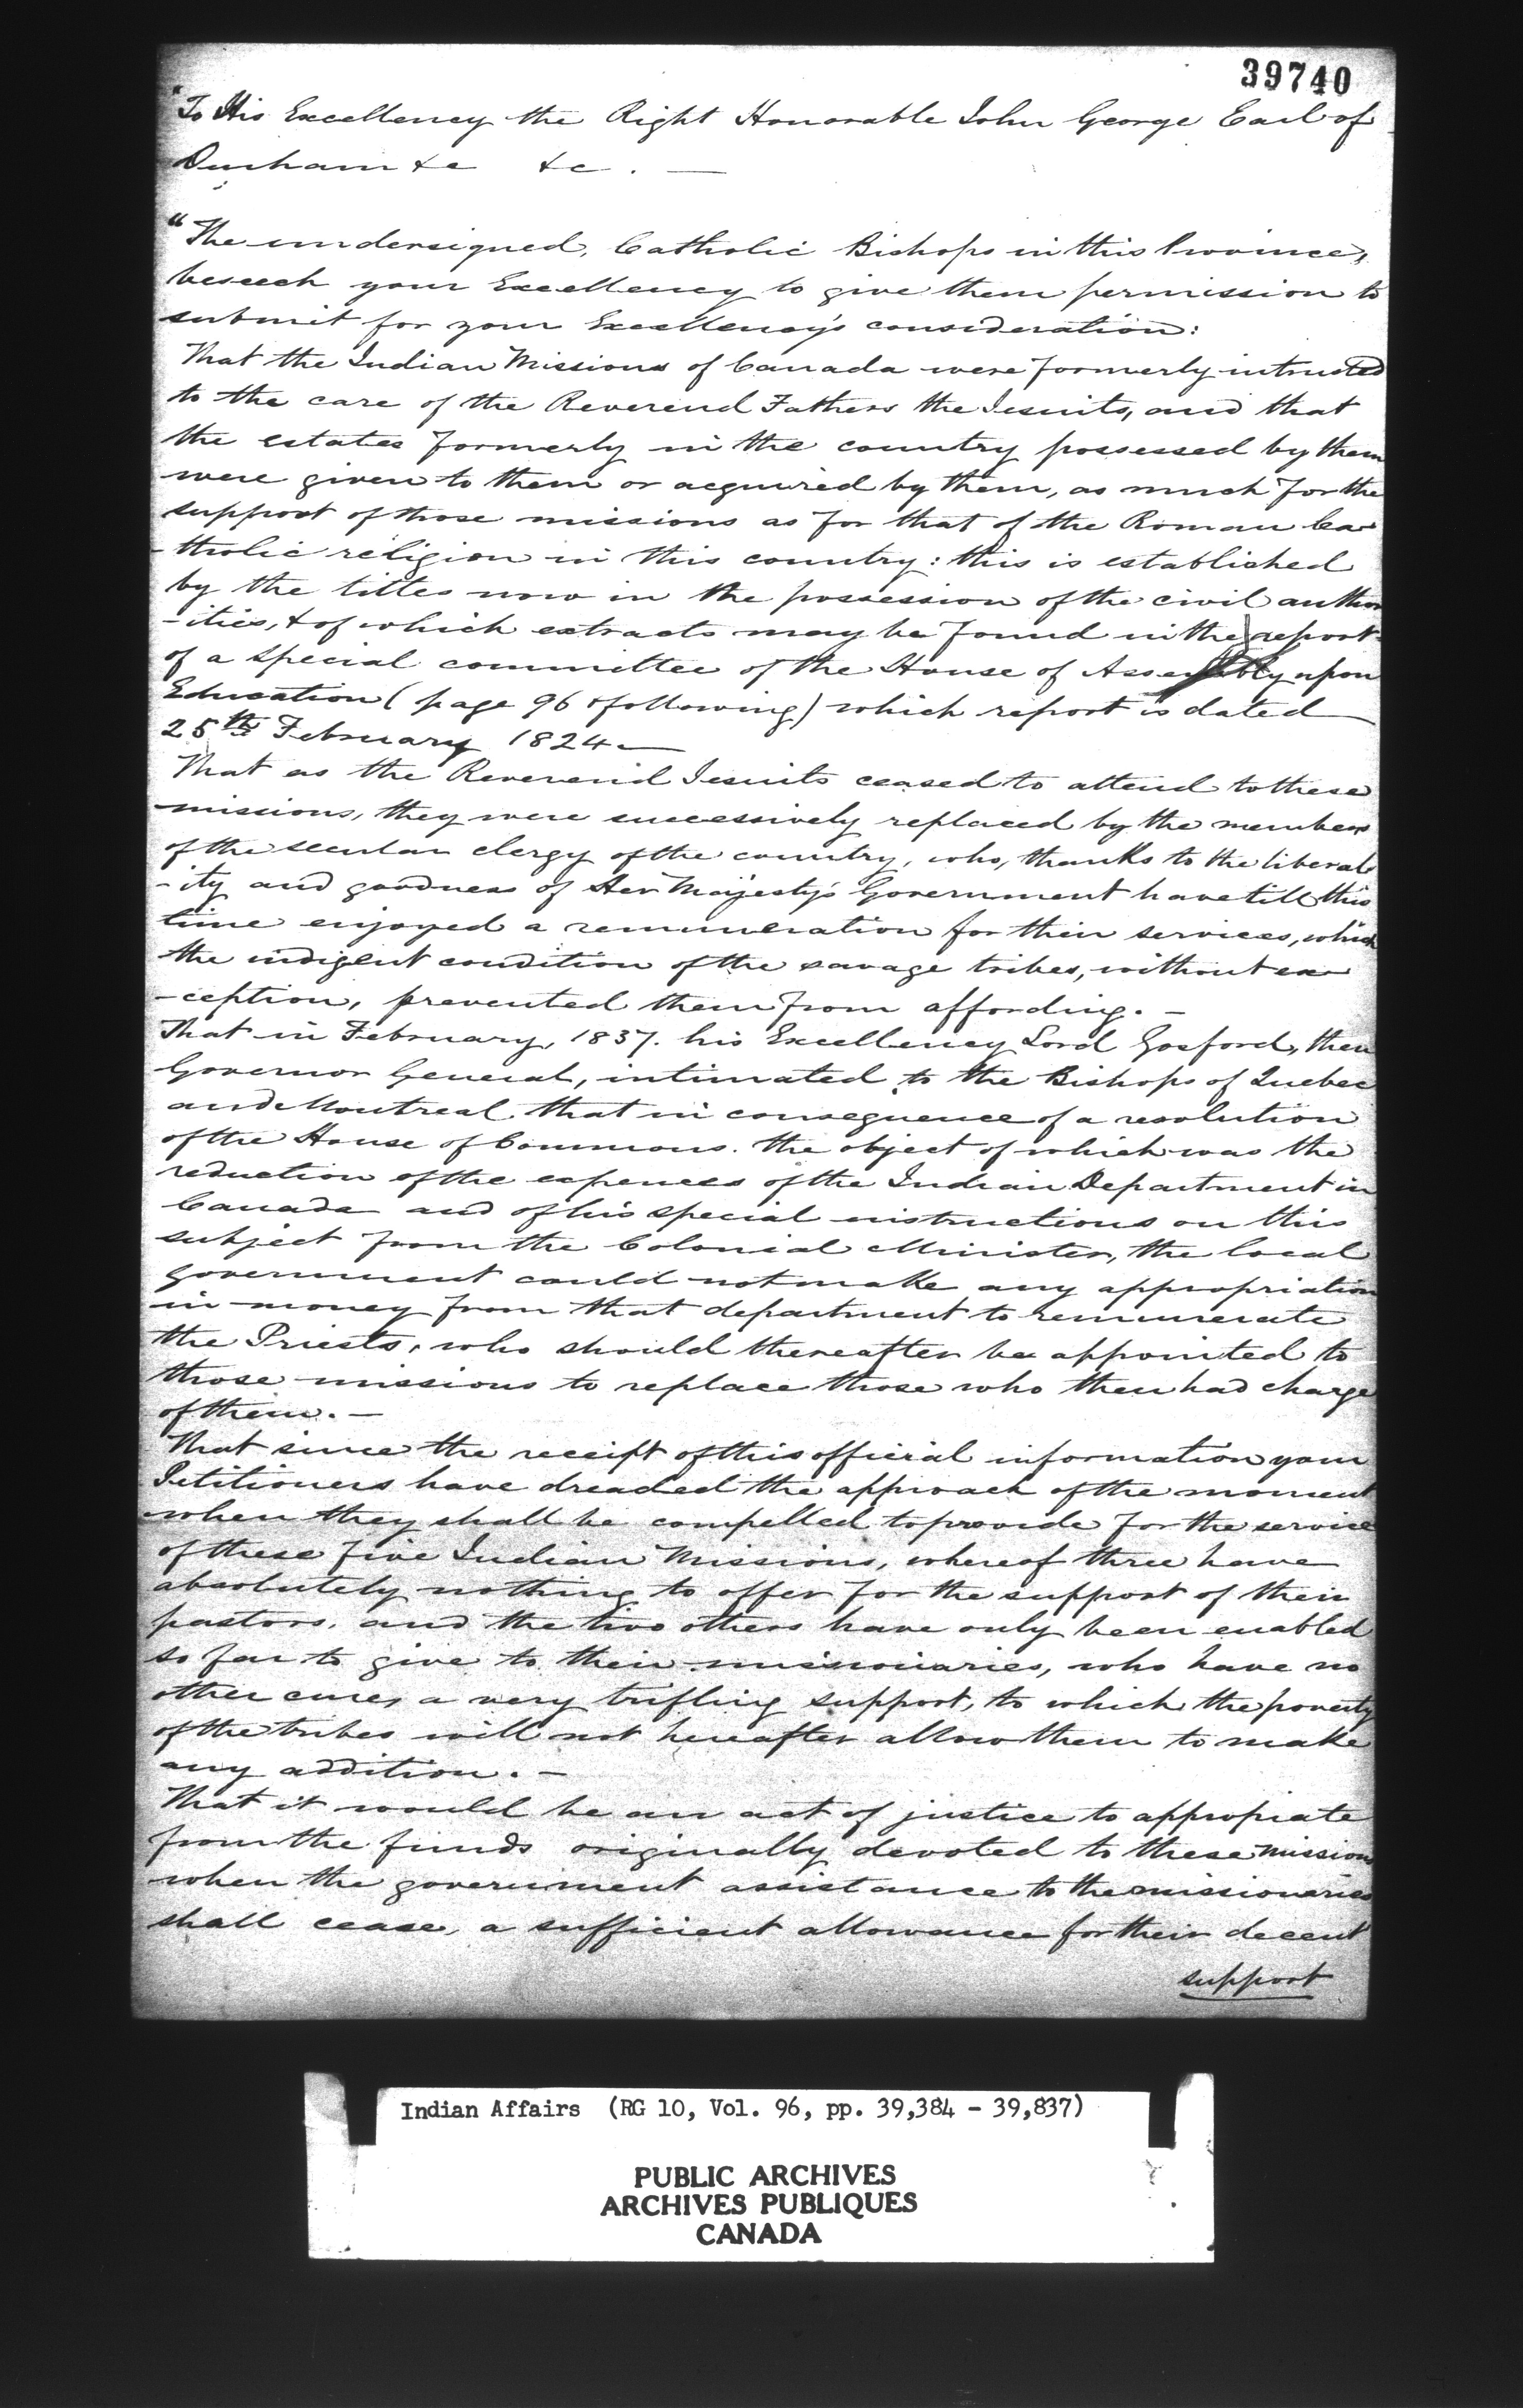 39740
"To His Excellency the Right Honorable John George Earl of
Durham &c &c. —
"The undersigned, Catholic Bishops in this Province,
beseech your Excellency to give them permission to
submit for your Excellency's consideration:
That the Indian Missions of Canada were formerly intrusted
to the care of the Reverend Fathers the Jesuits, and that
the estates formerly in the country possessed by them
were given to them or acquired by them, as much for the
support of those missions as for that of the Roman Ca
-tholic religion in this country: this is established
by the titles now in the possession of the civil author
-ities, & of which extracts may be found in the report
of a special committee of the House of Assembly upon
Education (page 96 & following) which report is dated
25th February 1824 —
That as the Reverend Jesuits ceased to attend to these
missions, they were successively replaced by the members
of the secular clergy of the country, who, thanks to the liberal
-ity and goodness of Her Majesty's Government have till this
time enjoyed a remuneration for their services, which
the indigent condition of the savage tribes, without ex
-ception, prevented them from affording. —
That in February, 1837. his Excellency Lord Gosford, then
Governor General, intimated to the Bishops of Quebec
and Montreal that in consequence of a resolution
of the House of Commons. the object of which was the
reduction of the expences of the Indian Department in
Canada and of his special instructions on this
subject from the Colonial Minister, the local
government could not make any appropriation
in money from that department to remunerate
the Priests, who should thereafter be appointed to
those missions to replace those who then had charge
of them. —
That since the receipt of this official information your
Petitioners have dreaded the approach of the moment
when they shall be compelled to provide for the service
of these five Indian Missions, whereof three have
absolutely nothing to offer for the support of their
pastors. and the two others have only been enabled
so far to give to their missionaries, who have no
other cures, a very trifling support, to which the poverty
of the tribes will not hereafter allow them to make
any addition. —
That it would be an act of justice to appropiate
from the funds originally devoted to these missions
when the government assistance to the missionaries
shall cease, a sufficient allowance for their decent
support
Indian Affairs (RG 10, Vol. 96, pp. 39,384 - 39,837)
PUBLIC ARCHIVES
ARCHIVES PUBLIQUES
CANADA